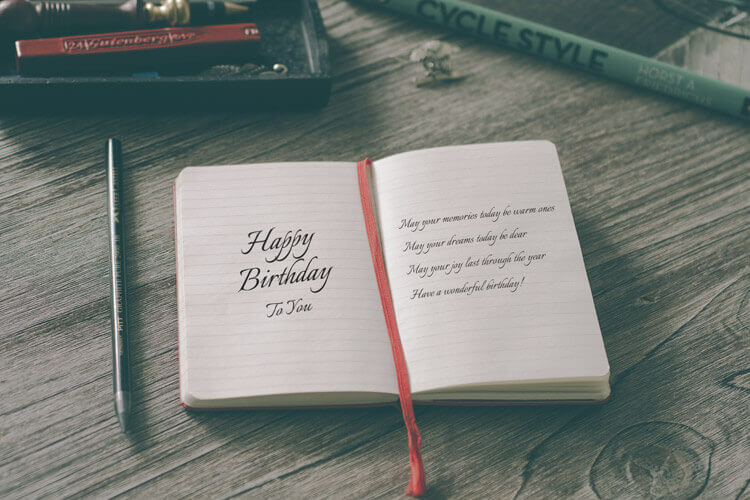 CYCLE STYLE
Happy
Birthday
To You
May your memories today be warm ones
May your dreams today be dear
May your joy last through the year
Have a wonderful birthday!